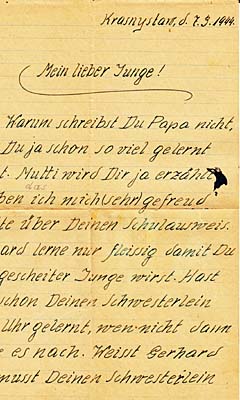 Krasnystaw, d. 7.3.1944.
Mein lieber Junge!
Warum schreibst Du Papa nicht,
Du ja schon so viel gelernt
t. Mutti wird Dir ja erzählt
das
ben ich mich (sehr) gefreud
te über Deinen Schulausweis.
ard lerne nur fleissig damit Du
gescheiter Junge wirst. Hast
schon Deinen Schwesterlein
Uhr gelernt, wen nicht dann
e es nach. Weisst Gerhard
musst Deinen Schwesterlein